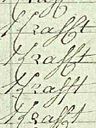 Krafft
Krafft
Krafft
Krafft
Krafft